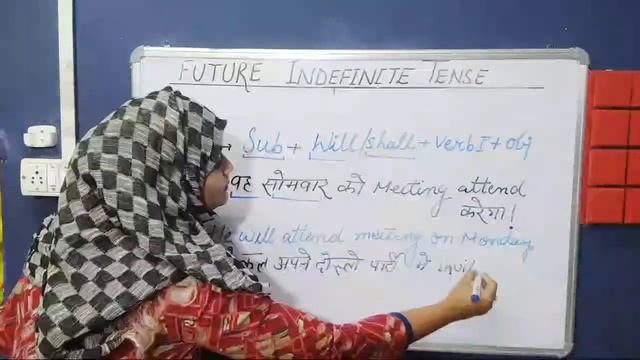 FUTURE INDEFINITE TENSE
→ Sub + Will/shall + verb I + obj
वह सोमवार को Meeting attend
करेगा!
He will attend meeting on Monday
कल अपने दोस्तो पार्टी में invi